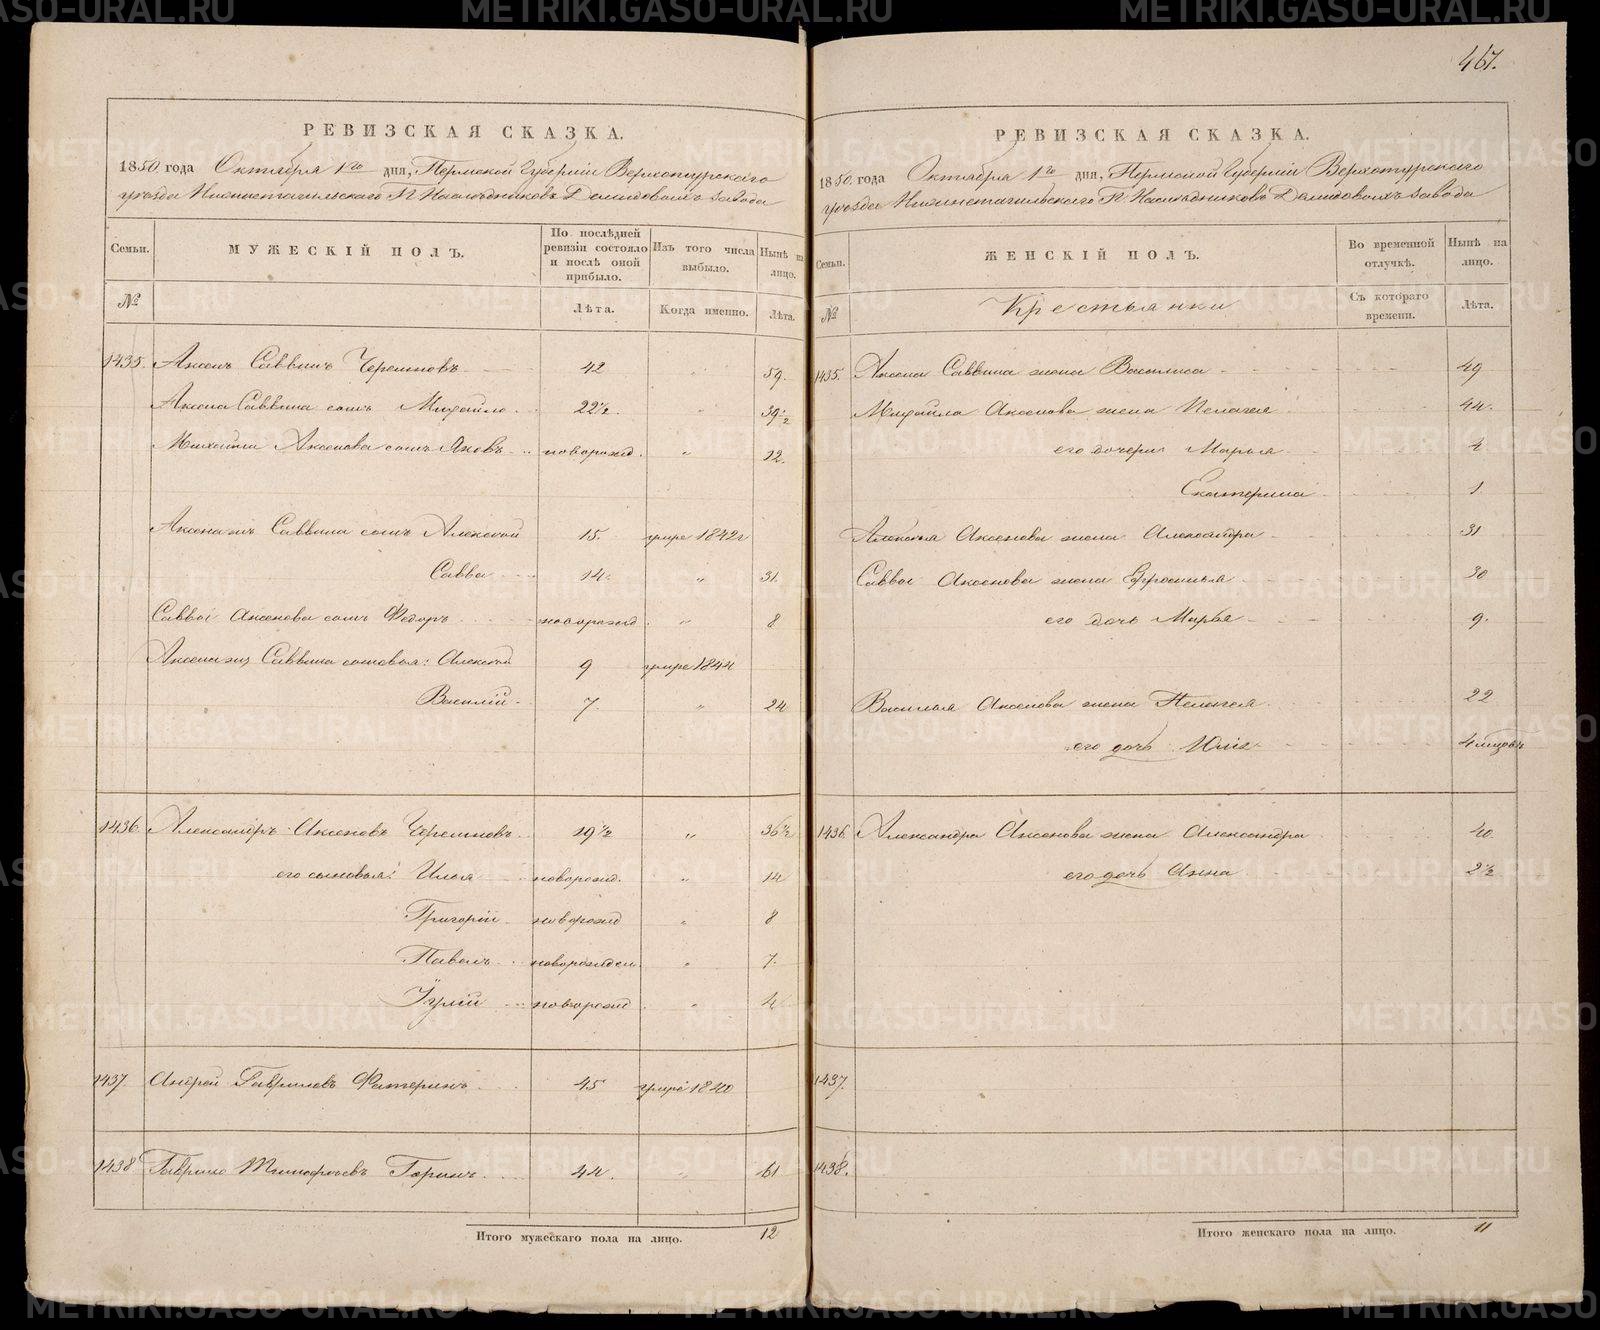 467.
РЕВИЗСКАЯ СКАЗКА.
1850 года Октября 1го дня, Пермской Губернiи Верхотурскаго
уѣзда Нижнетагильскаго Г. Наслѣдниковъ Демидовыхъ завода
Семьи. МУЖЕСКIЙ ПОЛЪ. По послѣдней ревизiи состояло и послѣ оной прибыло. Изъ того числа выбыло. Нынѣ на лицо.
№ Лѣта. Когда именно. Лѣта.
1435. Аксенъ Саввинъ 42 59.
Аксена Саввина сынъ Михайло 22½ 39½
Михайла Аксенова сынъ Яковъ новорожд. " 12.
Аксена жъ Саввина сынъ Алексей 15 умре 1842г
Савва 14. " 31.
Саввы Аксенова сынъ Федоръ новорожд. " 8
Аксена жъ Саввина сыновья: Алексей 9 умре 1844
Василiй 7 " 24
1436. Александръ Аксеновъ 19½ " 36½
его сыновья: Илья новорожд. " 14
Григорiй новорожд " 8
Павелъ новорожден. " 7.
Iулiй новорожд " 4
1437. Андрей Гавриловъ 45 умре 1840
1438 Гаврило Тимофѣевъ 44. " 61
Итого мужескаго пола на лицо. 12
РЕВИЗСКАЯ СКАЗКА.
1850 года Октября 1го дня, Пермской Губернiи Верхотурскаго
уѣзда Нижнетагильскаго Г. Наслѣдниковъ Демидовыхъ завода
Семьи. ЖЕНСКIЙ ПОЛЪ. Во временной отлучкѣ. Нынѣ на лицо.
№ Крестьянки Съ котораго времени. Лѣта.
1435. Аксена Саввина жена Василиса 49
Михайла Аксенова жена Пелагея 44.
его дочери Марья 4
Екатерина 1
Алексея Аксенова жена Александра 31
Саввы Аксенова жена Ефросинья 30
его дочь Марья 9.
Василья Аксенова жена Пелагея 22
его дочь Юлiя 4 мѣсяцовъ
1436. Александра Аксенова жена Александра 40.
его дочь Анна 2½
1437.
1438.
Итого женскаго пола на лицо. 11
METRIKI.GASO-URAL.RU